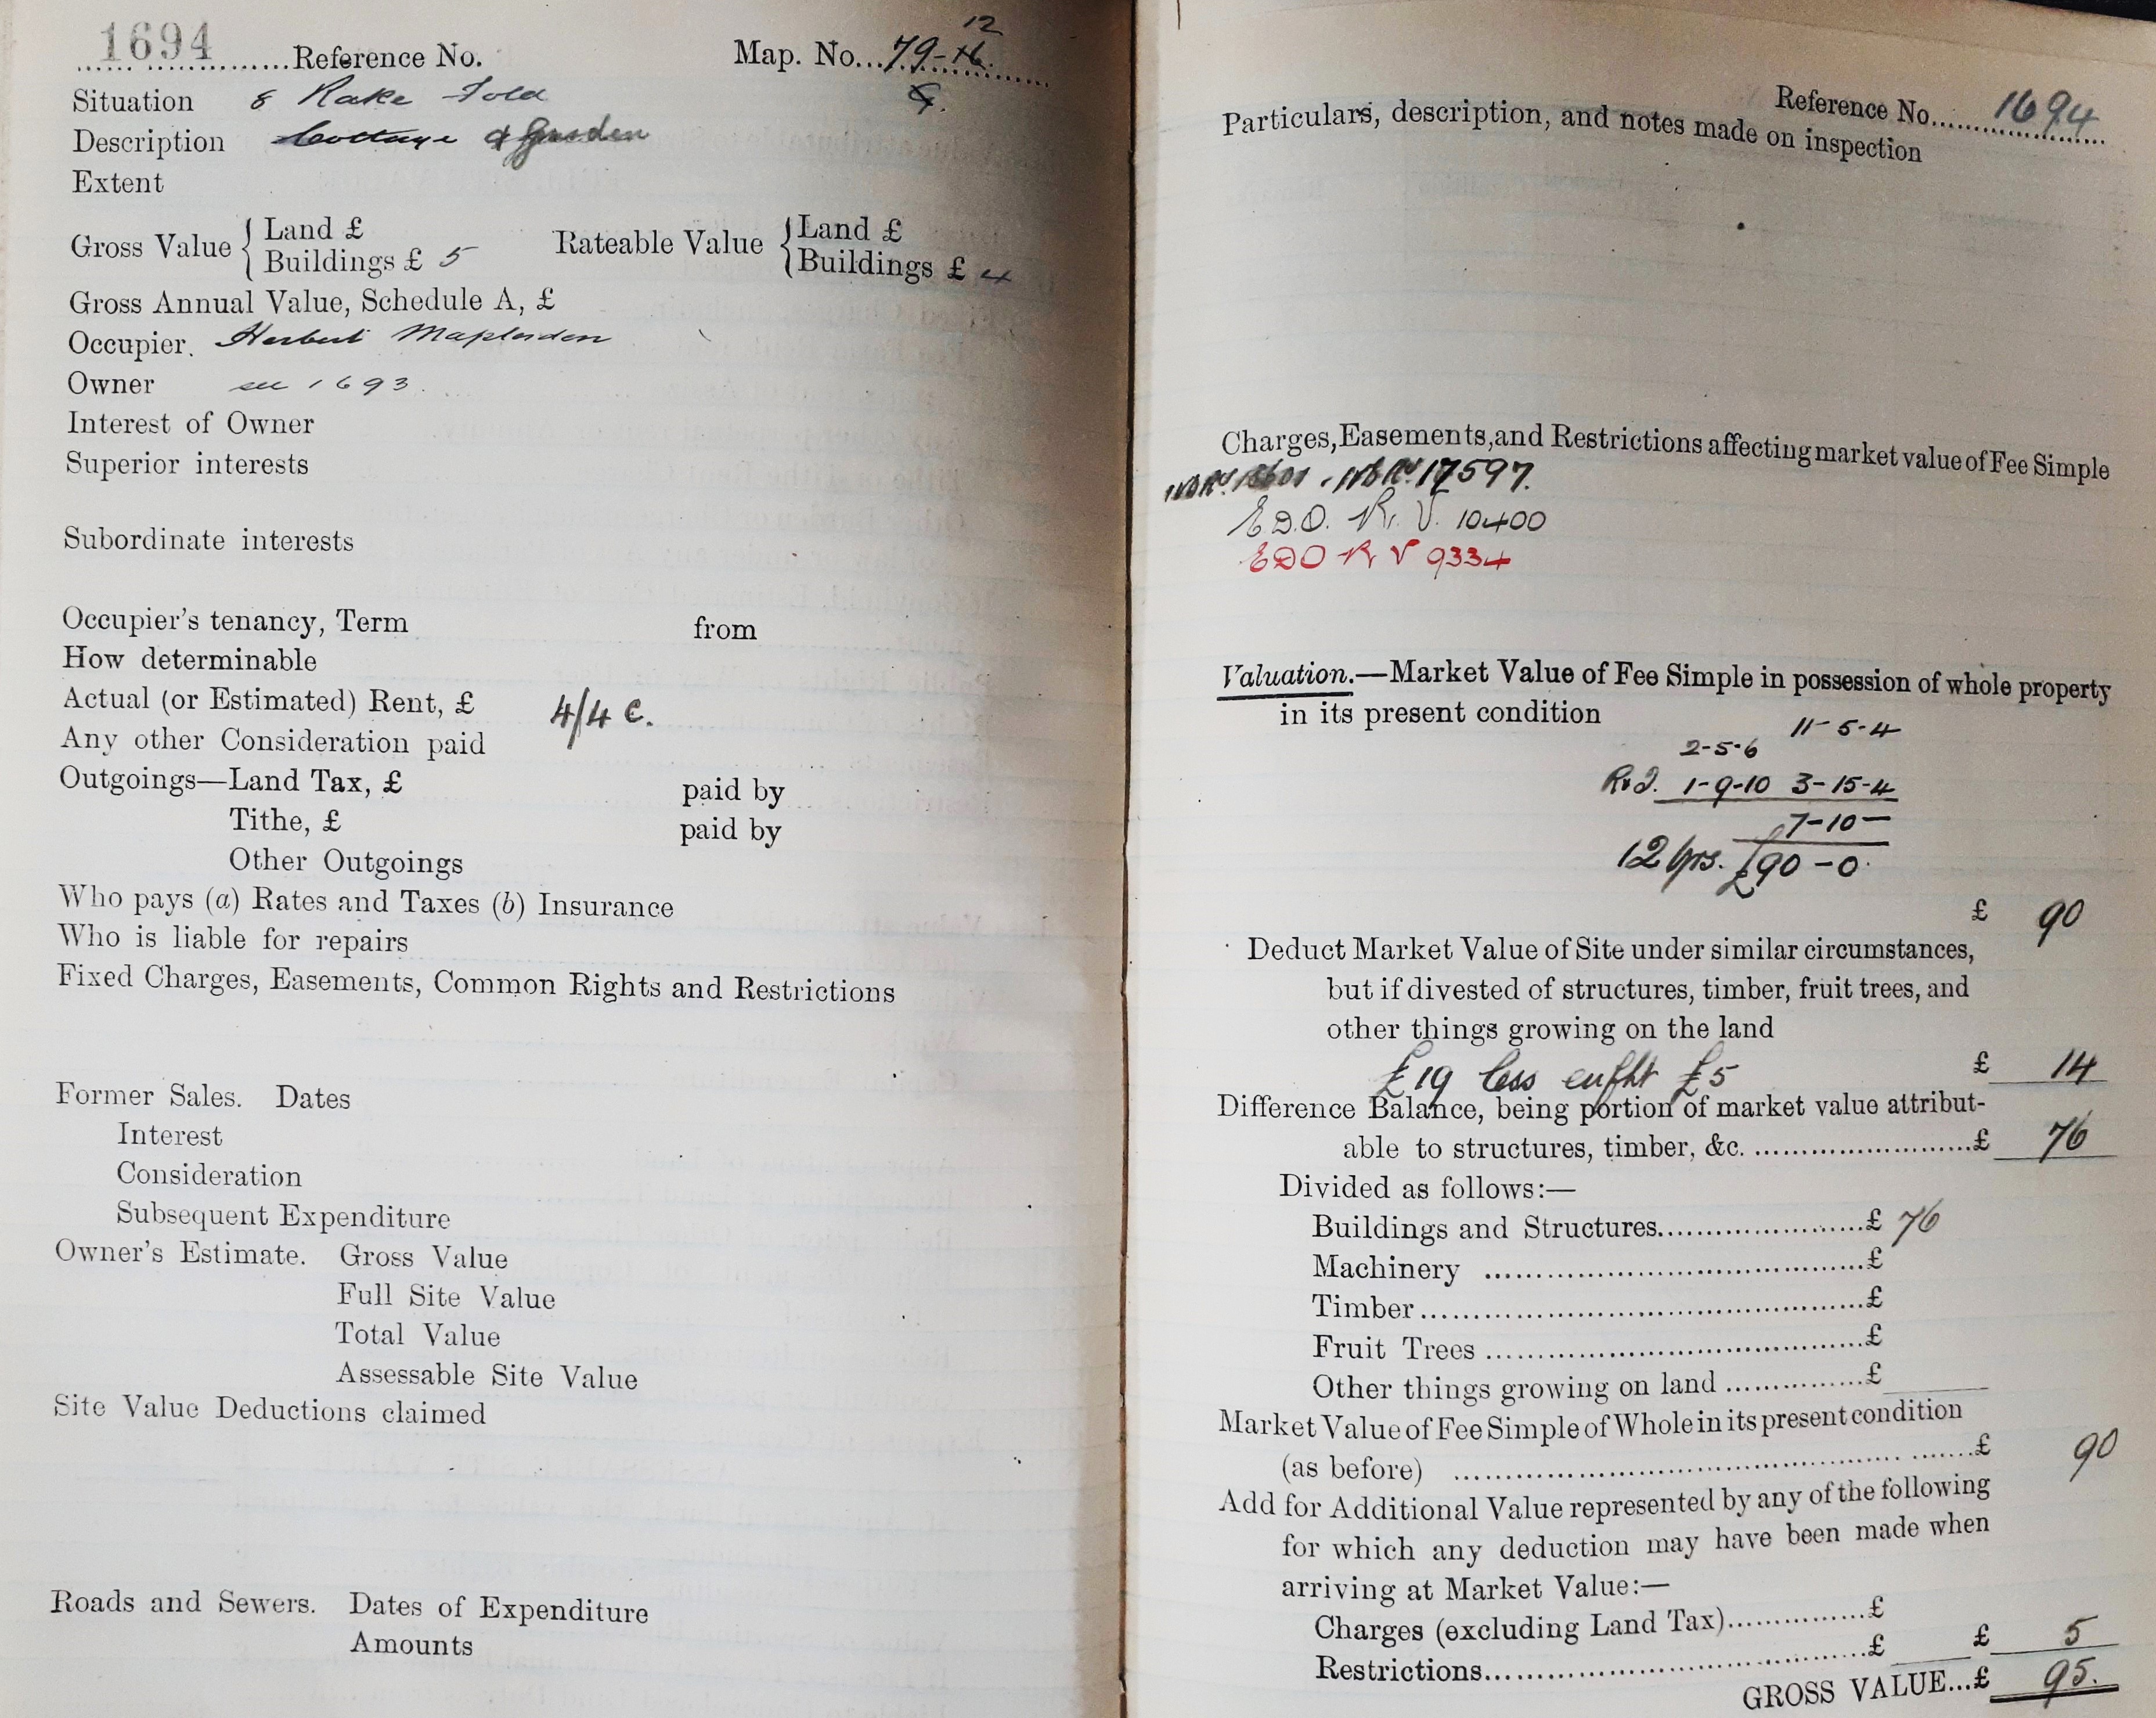 1694 Reference No. Map. No. 79-16. 12
Situation 8 Rake Fold
Description Cottage & Garden
Extent
Gross Value { Land £ Rateable Value { Land £
Buildings £ 5 Buildings £ 4
Gross Annual Value, Schedule A, £
Occupier. Herbert Maplesden
Owner see 1693.
Interest of Owner
Superior interests
Subordinate interests
Occupier's tenancy, Term from
How determinable
Actual (or Estimated) Rent, £ 4/4 c.
Any other Consideration paid
Outgoings—Land Tax, £ paid by
Tithe, £ paid by
Other Outgoings
Who pays (a) Rates and Taxes (b) Insurance
Who is liable for repairs
Fixed Charges, Easements, Common Rights and Restrictions
Former Sales. Dates
Interest
Consideration
Subsequent Expenditure
Owner's Estimate. Gross Value
Full Site Value
Total Value
Assessable Site Value
Site Value Deductions claimed
Roads and Sewers. Dates of Expenditure
Amounts
Reference No. 1694
Particulars, description, and notes made on inspection
Charges, Easements, and Restrictions affecting market value of Fee Simple
17597.
E.D.O. R. V. 10400
EDO R V 9334
Valuation.—Market Value of Fee Simple in possession of whole property
in its present condition
11-5-4
2-5-6
Red. 1-9-10 3-15-4
7-10—
12 yrs. £90-0.
£ 90
Deduct Market Value of Site under similar circumstances,
but if divested of structures, timber, fruit trees, and
other things growing on the land
£19 less £5 £ 14
Difference Balance, being portion of market value attribut-
able to structures, timber, &c. £ 76
Divided as follows:—
Buildings and Structures £ 76
Machinery £
Timber £
Fruit Trees £
Other things growing on land £
Market Value of Fee Simple of Whole in its present condition
(as before) £ 90
Add for Additional Value represented by any of the following
for which any deduction may have been made when
arriving at Market Value:—
Charges (excluding Land Tax) £
Restrictions £ £ 5
GROSS VALUE...£ 95.